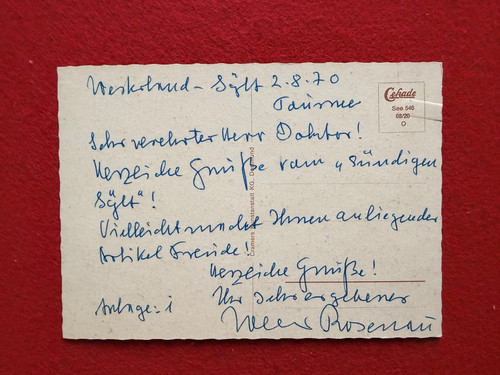 Westerland - Sylt 2.8.70
Tournee
Cekade
See 546
68/20
O
Sehr verehrter Herr Doktor!
Herzliche Grüße vom "sündigen
Sylt"!
Vielleicht macht Ihnen anliegender
Artikel Freude!
Herzliche Grüße!
Ihr sehr ergebener
Rosenau
Anlage: 1
Cramers Kunstanstalt KG, Dortmund